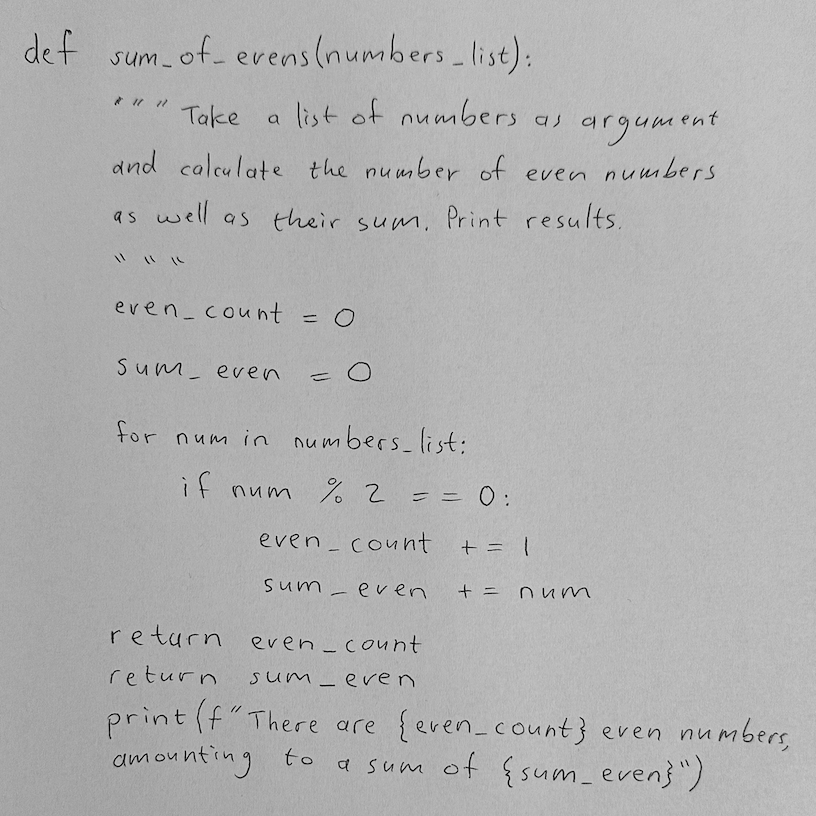 def sum_of_evens(numbers_list):
""" Take a list of numbers as argument
and calculate the number of even numbers
as well as their sum. Print results.
"""
even_count = 0
sum_even = 0
for num in numbers_list:
if num % 2 == 0:
even_count += 1
sum_even += num
return even_count
return sum_even
print(f"There are {even_count} even numbers,
amounting to a sum of {sum_even}")